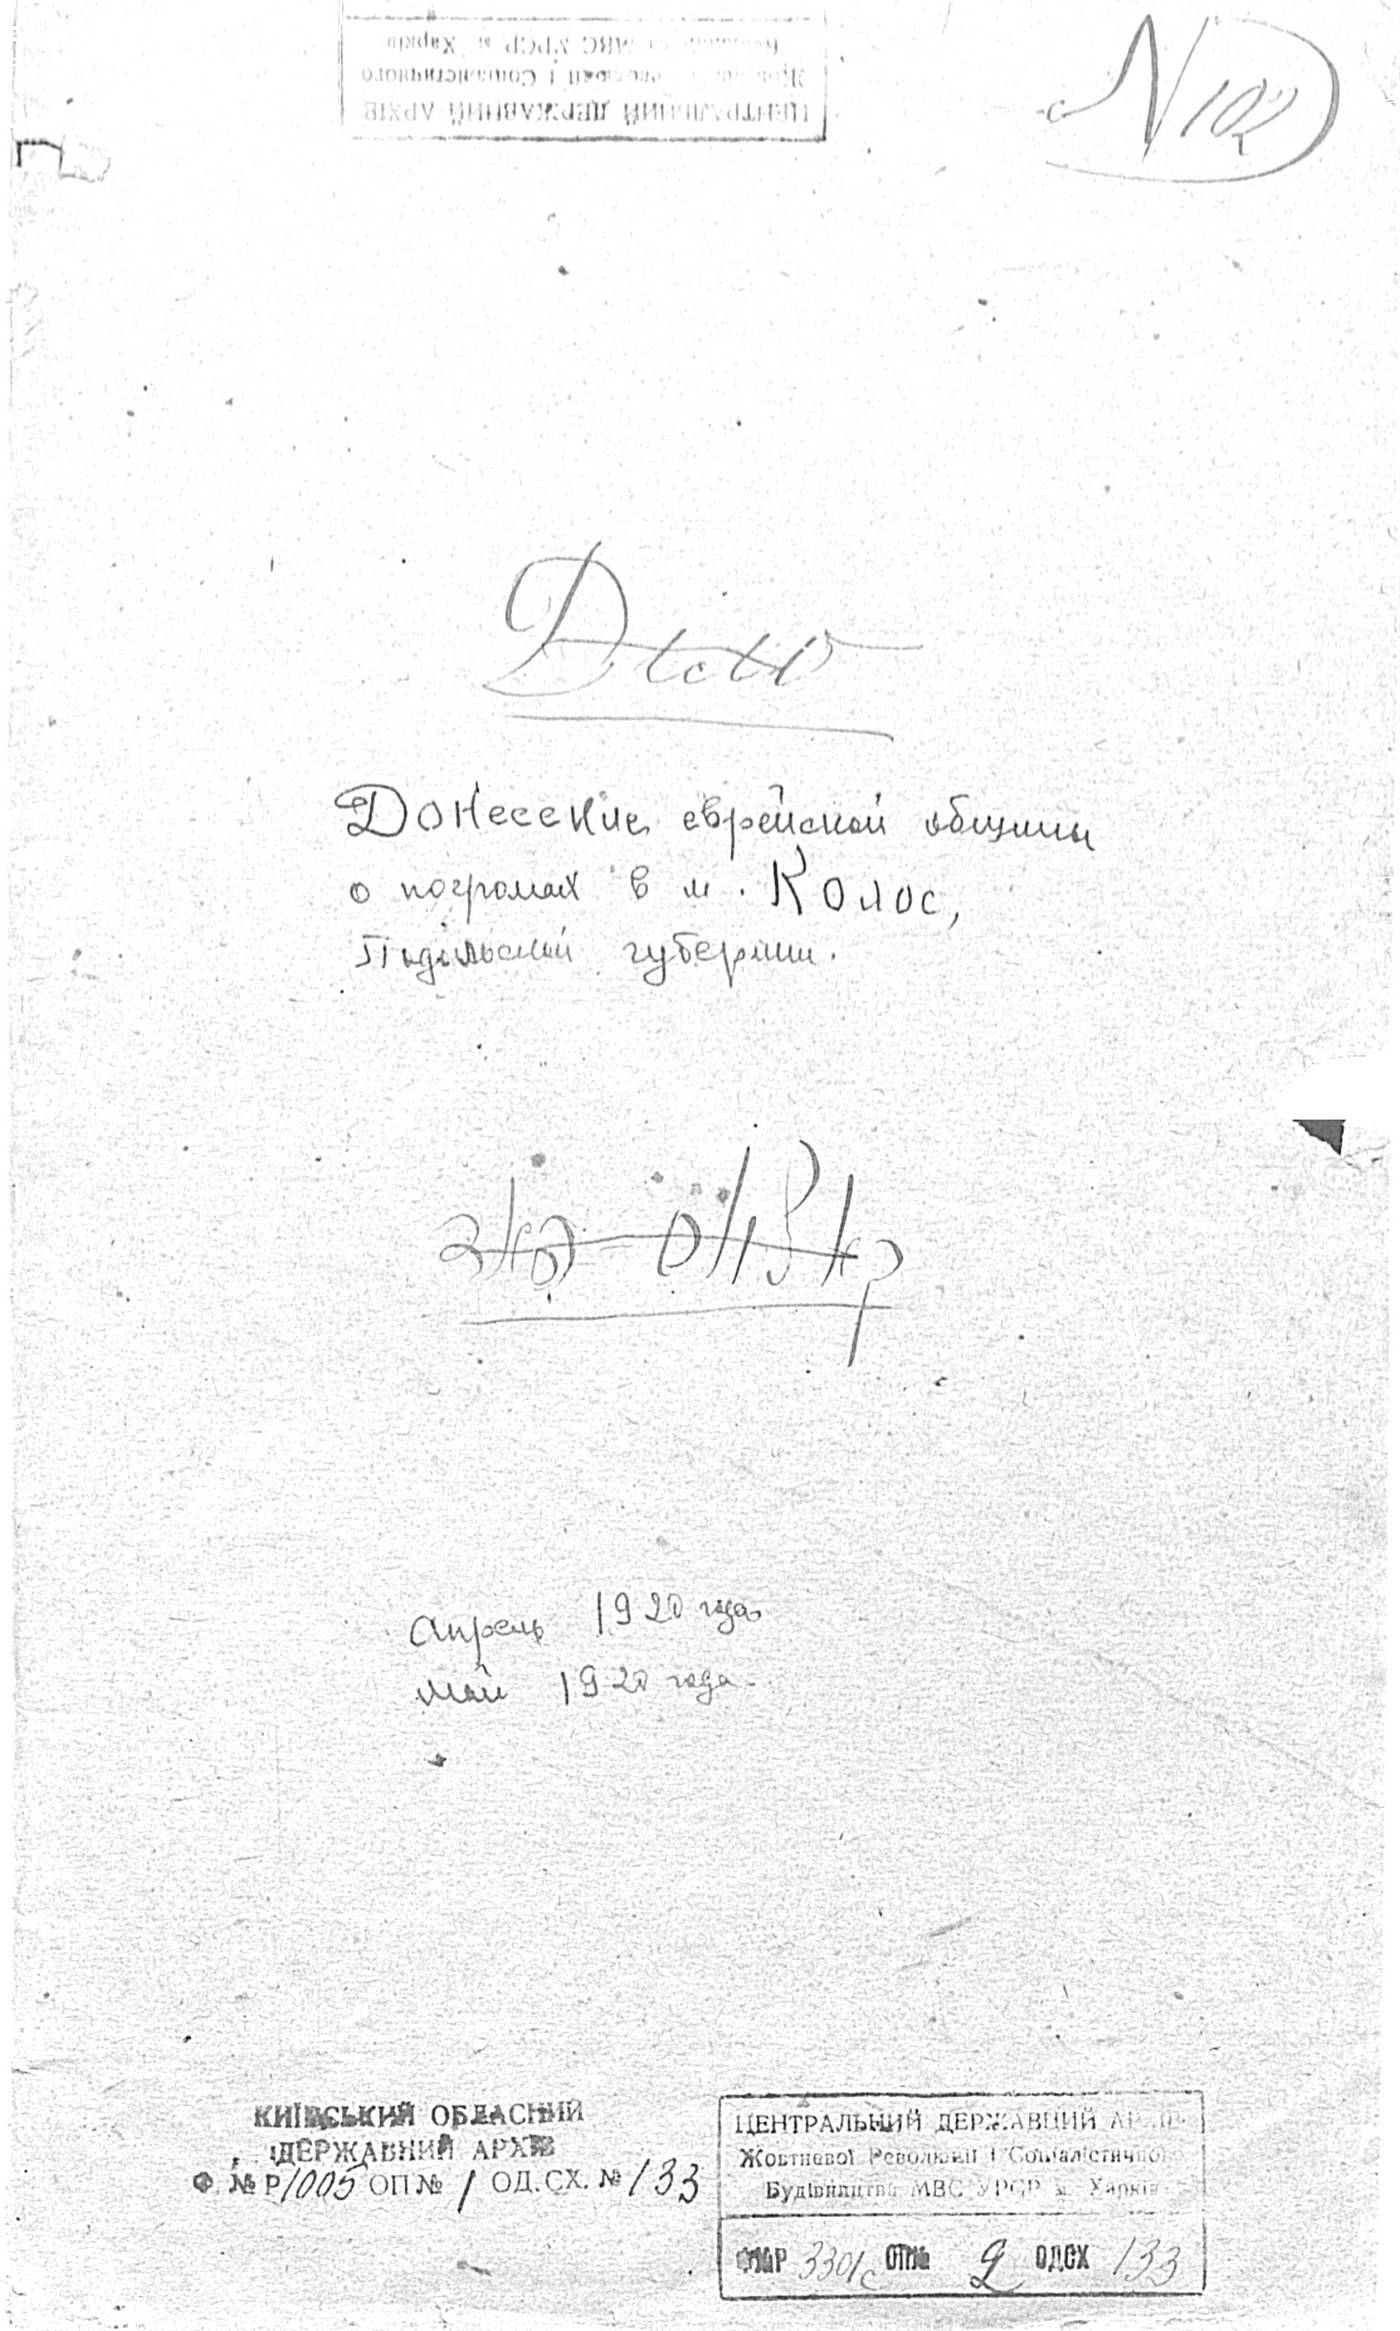 ЦЕНТРАЛЬНИЙ ДЕРЖАВНИЙ АРХІВ
і Соціалістичного
МВС УРСР м. Харків
N 102
Дело
Донесение еврейской общины
о погромах в м. Колос,
Подольской губернии.
Апрель 1920 года
май 1920 года.
КИЇВСЬКИЙ ОБЛАСНИЙ
ДЕРЖАВНИЙ АРХІВ
Ф. № Р1005 ОП № 1 ОД. СХ. № 133
ЦЕНТРАЛЬНИЙ ДЕРЖАВНИЙ АРХІВ
Жовтневої Революції і Соціалістичного
Будівництва МВС УРСР м. Харків
Ф№Р 3301с ОП№ 2 ОДСХ 133